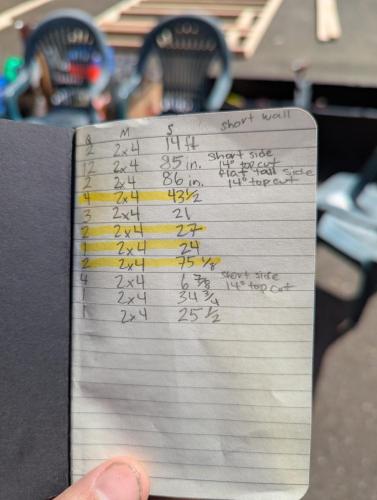 short wall
Q M S
2 2x4 14 ft
12 2x4 85 in. short side 14° top cut
2 2x4 86 in. flat tall side 14° top cut
4 2x4 43 1/2
3 2x4 21
2 2x4 27
1 2x4 24
2 2x4 75 1/8
4 2x4 6 7/8 short side 14° top cut
1 2x4 34 3/4
1 2x4 25 1/2